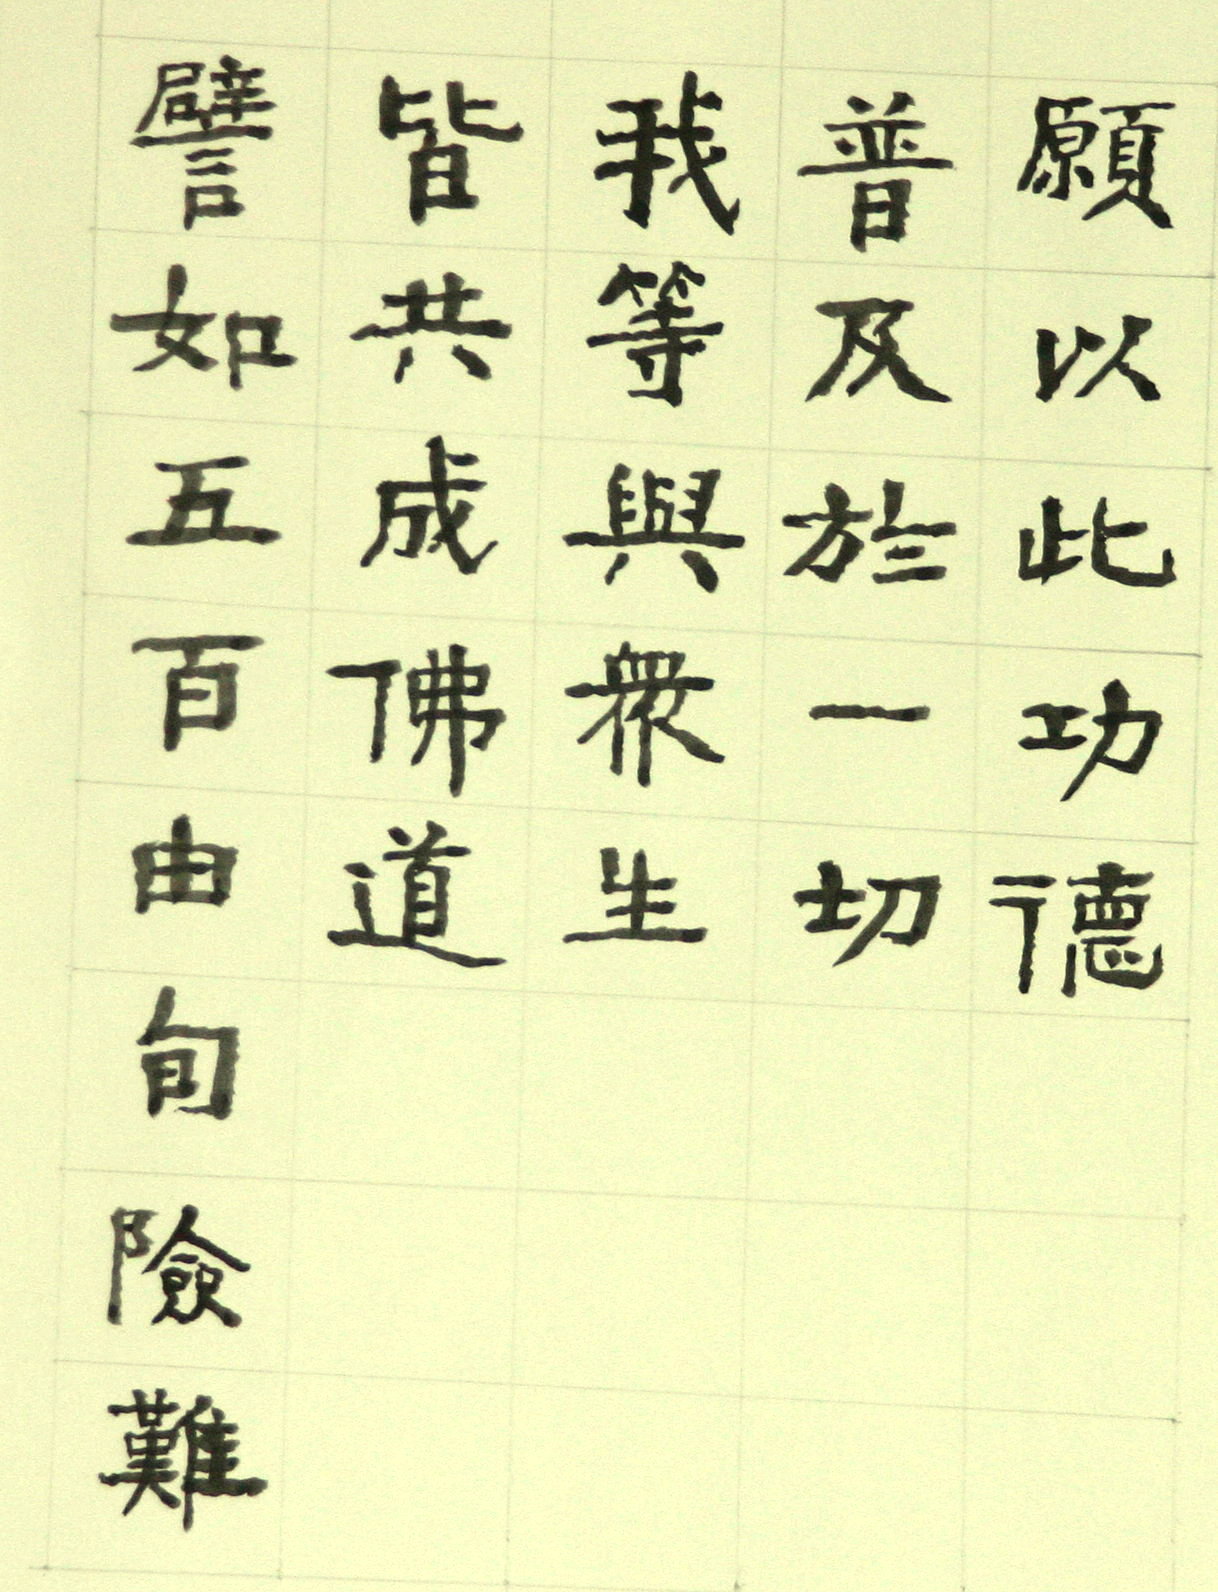 願以此功德
普及於一切
我等與眾生
皆共成佛道
譬如五百由旬險難